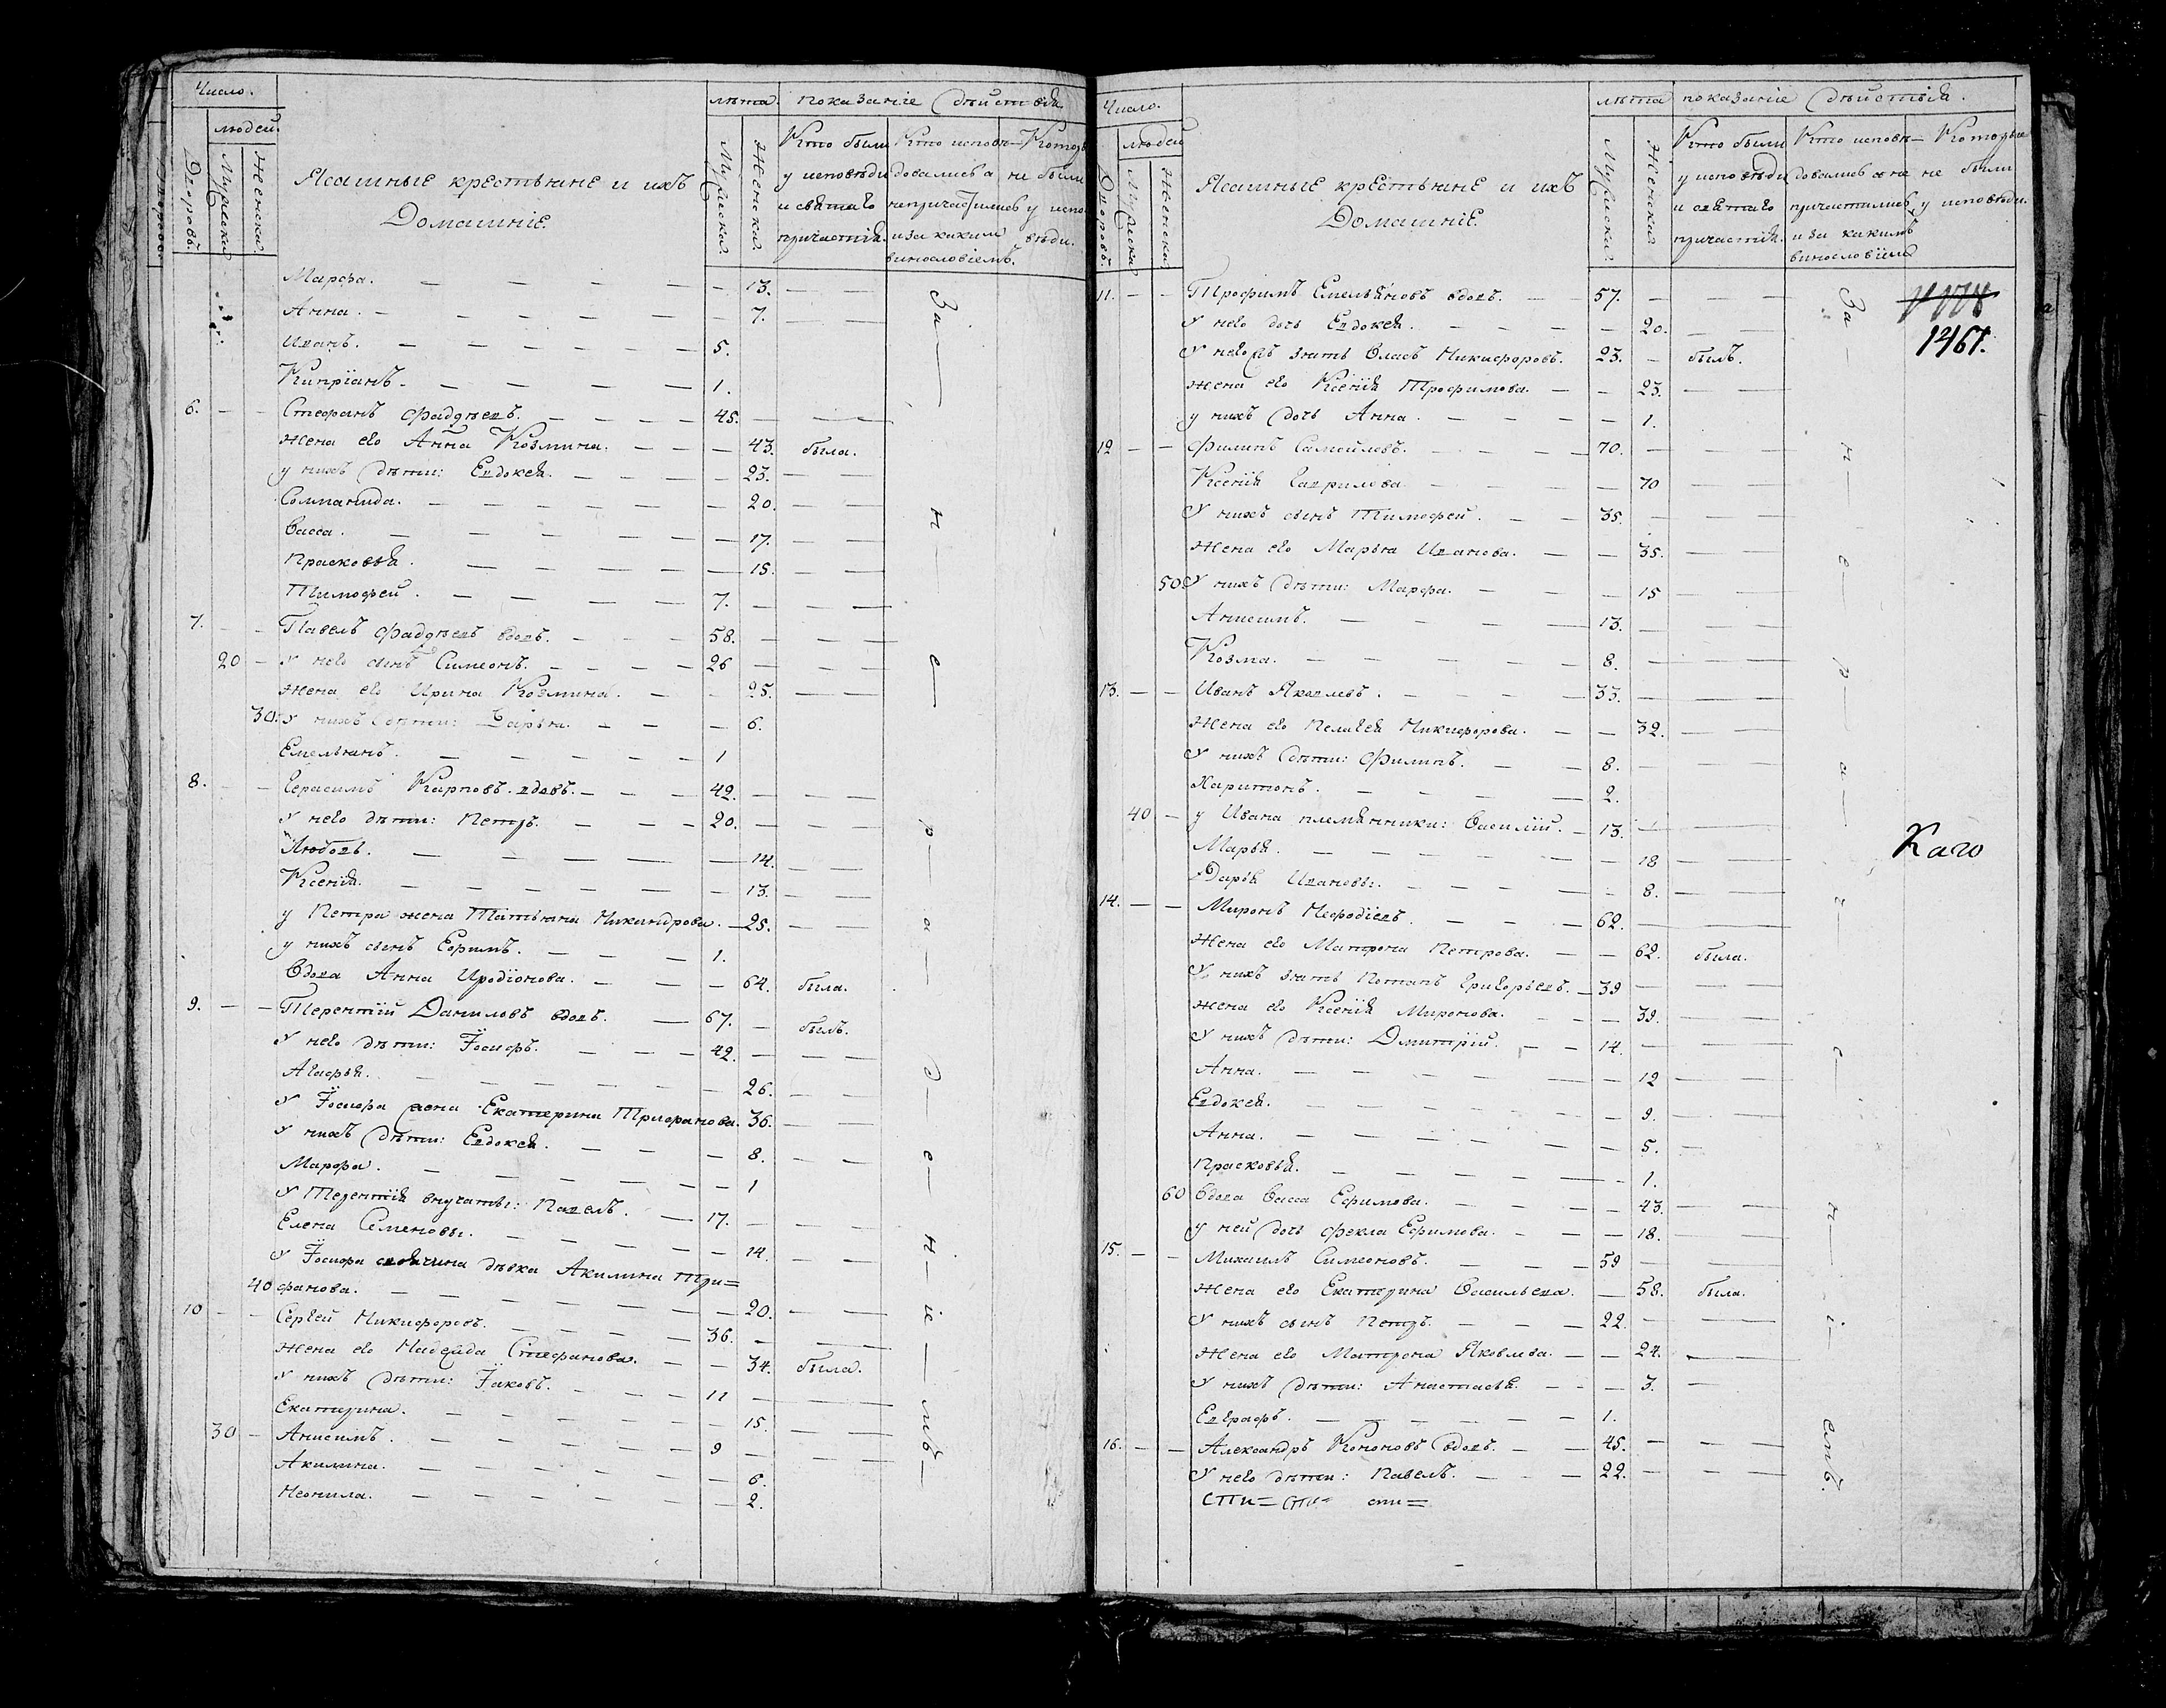 Число.
людей.
Дворовъ.
Мужеска
Женска.
Ясашные крестьяне и ихъ
Домашніе.
лѣта.
Мужеска
Женска.
показаніе дѣйствія
Кто были у исповѣди и святаго причастія.
Кто исповѣдовались а непричастились и за какимъ винословіемъ.
не были у испо-вѣди.
Марфа. 13.
Анна. 7.
Иванъ. 5.
Кипріанъ. 1.
6. Стефанъ Фадѣевъ. 45.
Жена его Анна Козмина. 43. была.
у нихъ дѣти: Евдокея. 23.
Соломанида. 20.
Васса. 17.
Прасковья. 15.
Тимофей. 7.
7. Павелъ Фадѣевъ вдовъ. 58.
20 У него сынъ Симеонъ. 26
Жена его Ирина Козмина. 25.
30. У нихъ дѣти: Дарья. 6.
Емельянъ. 1
8. Герасимъ Карповъ. вдовъ. 42.
У него дѣти: Петръ. 20.
Любовь. 14.
Ксенія. 13.
у Петра жена Татьяна Никандрова. 25.
у нихъ сынъ Ефимъ. 1.
Вдова Анна Иродіонова. 64. была.
9. Терентій Даниловъ вдовъ. 67. былъ.
У него дѣти: Іосифъ. 42.
Агафья. 26.
У Іосифа жена Екатерина Трифанова. 36.
У нихъ дѣти: Евдокея. 8.
Марфа. 1
У Терентія внучаты: Павелъ. 17.
Елена Семеновы. 14.
У Іосифа своячина дѣвка Акилина Три=
40 фанова. 20.
10 Сергей Никифоровъ. 36.
Жена его Надежда Стефанова. 34. была.
У нихъ дѣти: Іаковъ. 11
Екатерина. 15.
30 Анисимъ. 9
Акилина. 6.
Неонила. 2.
За н е р а д е н і е мъ
Число.
людей
Дворовъ.
Мужеска
Женска.
Ясашные крестьяне и ихъ
Домашніе.
лѣта
Мужеска
Женска.
показаніе дѣйствія.
Кто были у исповѣди и святаго причастія.
Кто исповѣдовались а не причастились и за какимъ винословіемъ
Которые не были у исповѣди.
1461.
11. Трофимъ Емельяновъ вдовъ. 57.
У него дочь Евдокея. 20.
У него жъ зять Власъ Никифоровъ. 23. былъ.
Жена его Ксенія Трофимова. 23.
у нихъ дочь Анна. 1.
12 Филипъ Самойловъ. 70.
Ксенія Гаврилова. 70
У нихъ сынъ Тимофей. 35.
Жена его Марья Иванова. 35.
50 У нихъ дѣти: Марфа. 15
Анисимъ. 13.
Козма. 8.
13. Иванъ Яковлевъ. 33.
Жена его Пелагея Никифорова. 32.
У нихъ дѣти: Филипъ. 8.
Харитонъ. 2.
40 у Ивана племянники: Василій. 13.
Марья. 18
Дарья Ивановы. 8.
14. Миронъ Нефодіевъ. 62.
Жена его Матрона Петрова. 62. была.
У нихъ зять Потапъ Григорьевъ. 39
Жена его Ксенія Миронова. 39.
У нихъ дѣти: Дмитрій. 14.
Анна. 12
Евдокея. 9.
Анна. 5.
Прасковья. 1.
60 Вдова Васса Ефимова. 43.
у ней дочь Фекла Ефимова. 18.
15. Михаилъ Симеоновъ. 59
Жена его Екатерина Васильева. 58. была.
У нихъ сынъ Петръ. 22.
Жена его Матрона Яковлева. 24.
У нихъ дѣти: Анастасья. 3.
Евграфъ. 1.
16. Александръ Кононовъ вдовъ. 45.
У него дѣти: Павелъ. 22.
Сти= Сти= сти=
За н е р а
Каго